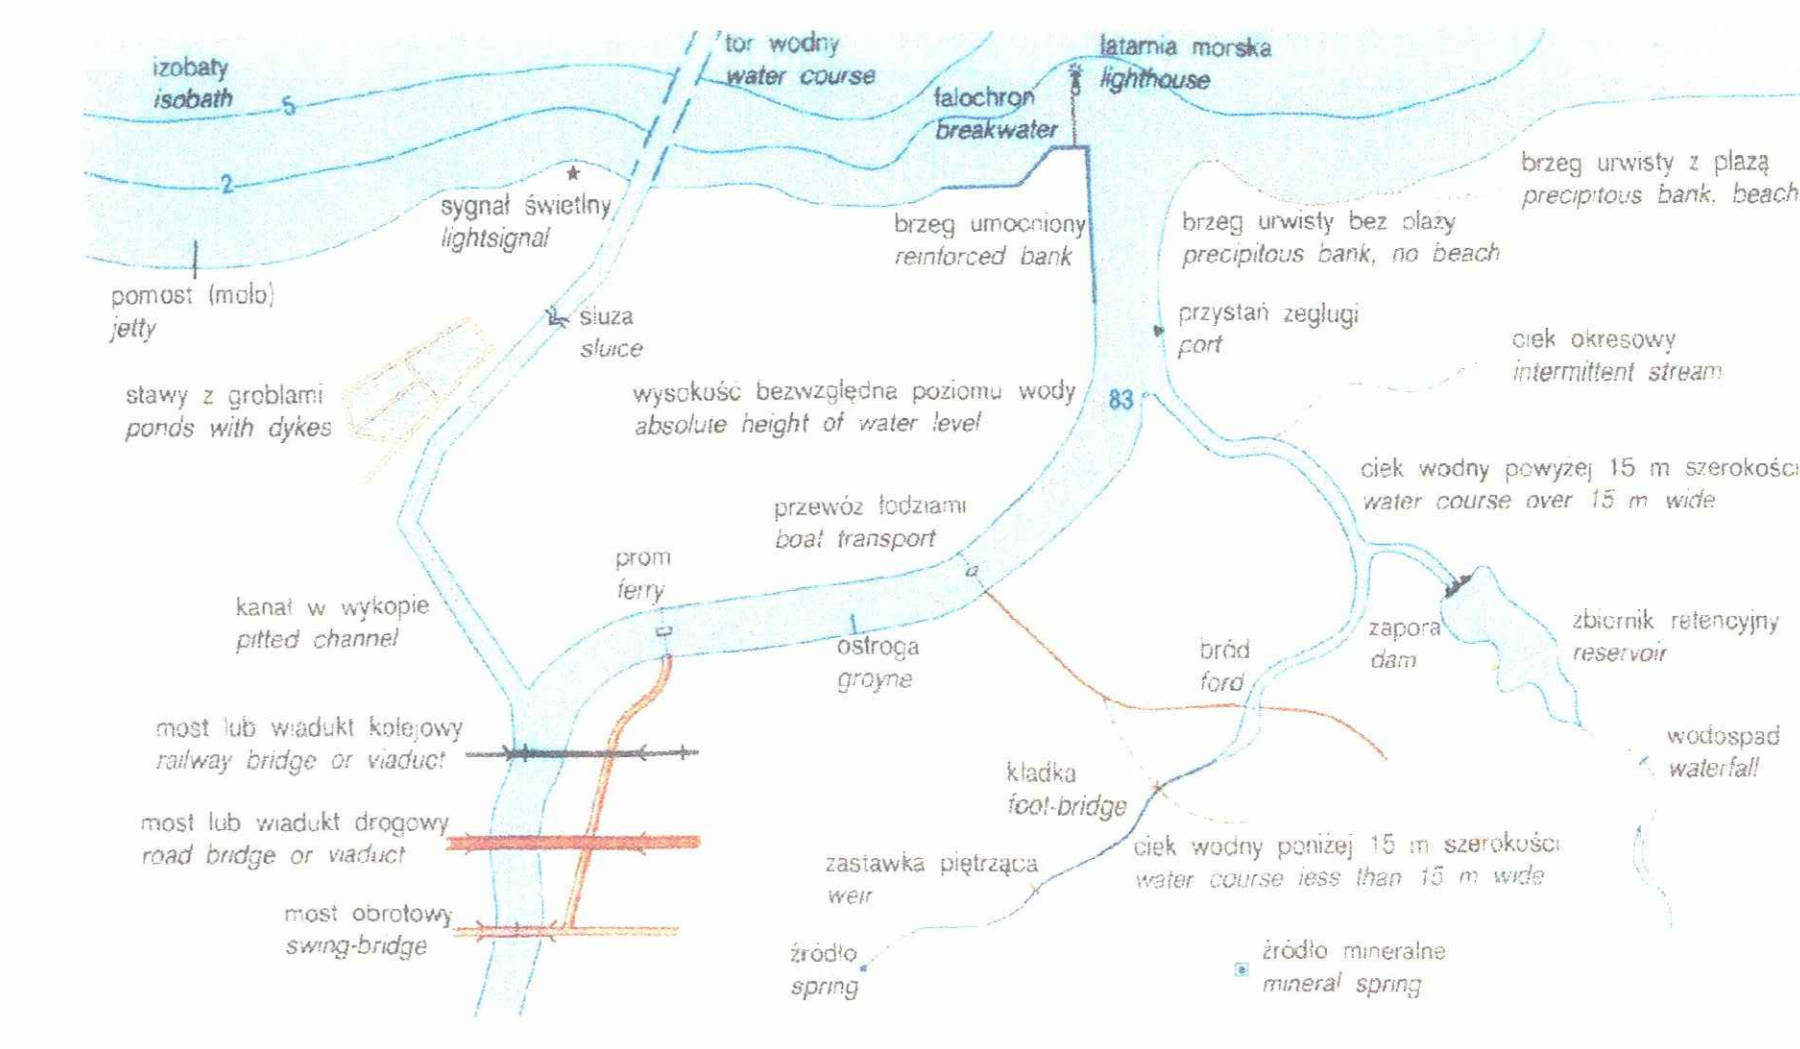 tor wodny
water course
izobaty
isobath
5
2
latarnia morska
lighthouse
falochron
breakwater
brzeg urwisty z plażą
precipitous bank, beach
sygnał świetlny
lightsignal
brzeg umocniony
reinforced bank
brzeg urwisty bez plaży
precipitous bank, no beach
pomost (molo)
jetty
śluza
sluice
przystań żeglugi
port
ciek okresowy
intermittent stream
stawy z groblami
ponds with dykes
wysokość bezwzględna poziomu wody
absolute height of water level
83
ciek wodny powyżej 15 m szerokości
water course over 15 m wide
przewóz łodziami
boat transport
prom
ferry
kanał w wykopie
pitted channel
ostroga
groyne
bród
ford
zapora
dam
zbiornik retencyjny
reservoir
most lub wiadukt kolejowy
railway bridge or viaduct
wodospad
waterfall
kładka
foot-bridge
most lub wiadukt drogowy
road bridge or viaduct
ciek wodny poniżej 15 m szerokości
water course less than 15 m wide
zastawka piętrząca
weir
most obrotowy
swing-bridge
źródło
spring
źródło mineralne
mineral spring